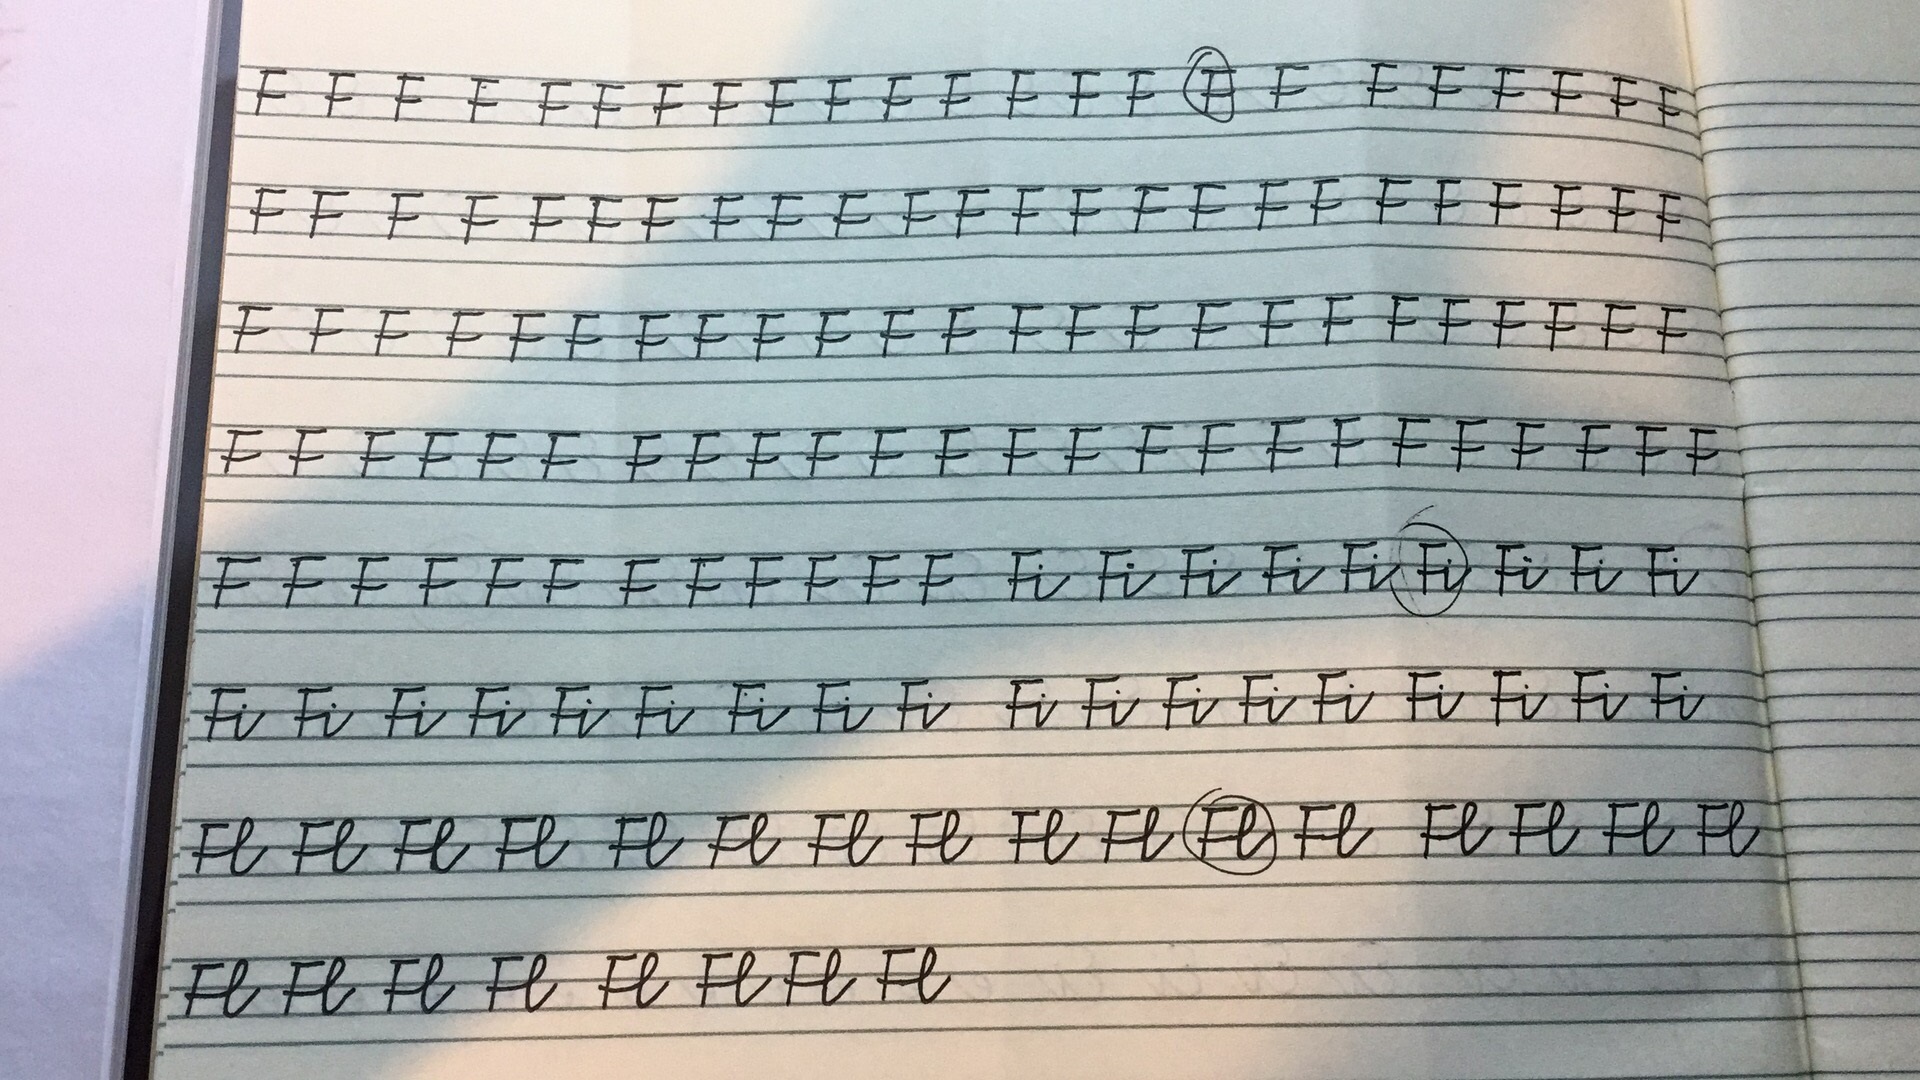 F F F F F F F F F F F F F F F F F F F F F F F
F F F F F F F F F F F F F F F F F F F F F F F F
F F F F F F F F F F F F F F F F F F F F F F F F
F F F F F F F F F F F F F F F F F F F F F F F F
F F F F F F F F F F F F Fi Fi Fi Fi Fi Fi Fi Fi Fi
Fi Fi Fi Fi Fi Fi Fi Fi Fi Fi Fi Fi Fi Fi Fi Fi Fi Fi
Fl Fl Fl Fl Fl Fl Fl Fl Fl Fl Fl Fl Fl Fl Fl Fl
Fl Fl Fl Fl Fl Fl Fl Fl